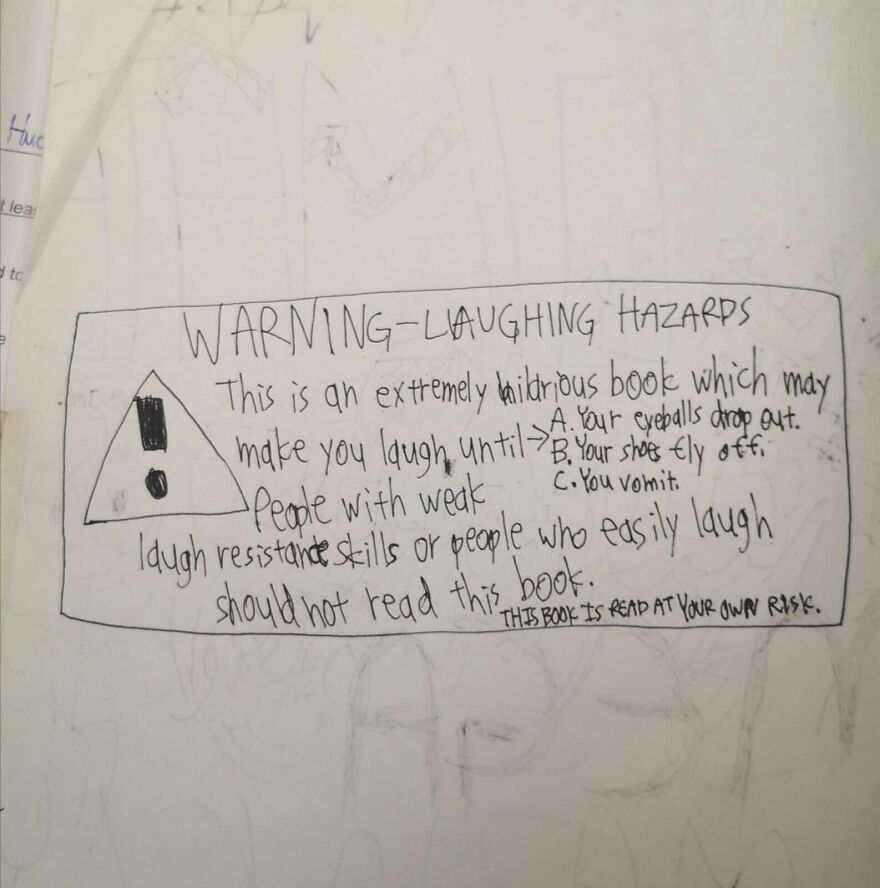 Huc
t leas
d to
e
WARNING-LAUGHING HAZARDS
This is an extremely hilarious book which may
make you laugh, until→ A. Your eyeballs drop out.
B. Your shoes fly off.
C. You vomit.
People with weak
laugh resistance skills or people who easily laugh
should not read this book.
THIS BOOK IS READ AT YOUR OWN RISK.